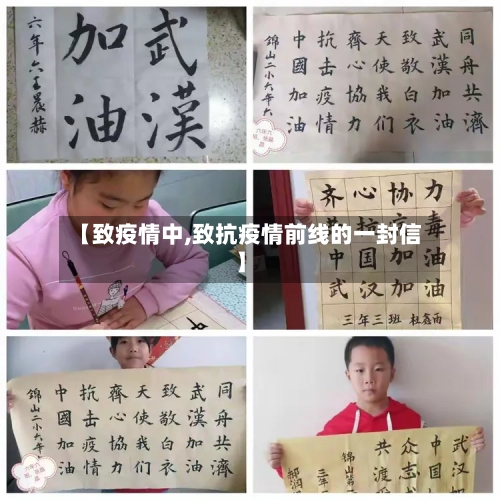 武漢
加油
六年六王晨赫
同舟共濟
武漢加油
致敬白衣
天使我们
齊心協力
抗击疫情
中國加油
錦山二小六年六
【致疫情中,致抗疫情前线的一封信
】
齐心协力
毒
中国加油
武汉加油
三年三班 杜鑫雨
同舟共濟
武漢加油
致敬白衣
天使我们
齊心協力
抗击疫情
中國加油
錦山二小六年六
武汉加
中国加
众志
共渡
锦山
三年
郝润